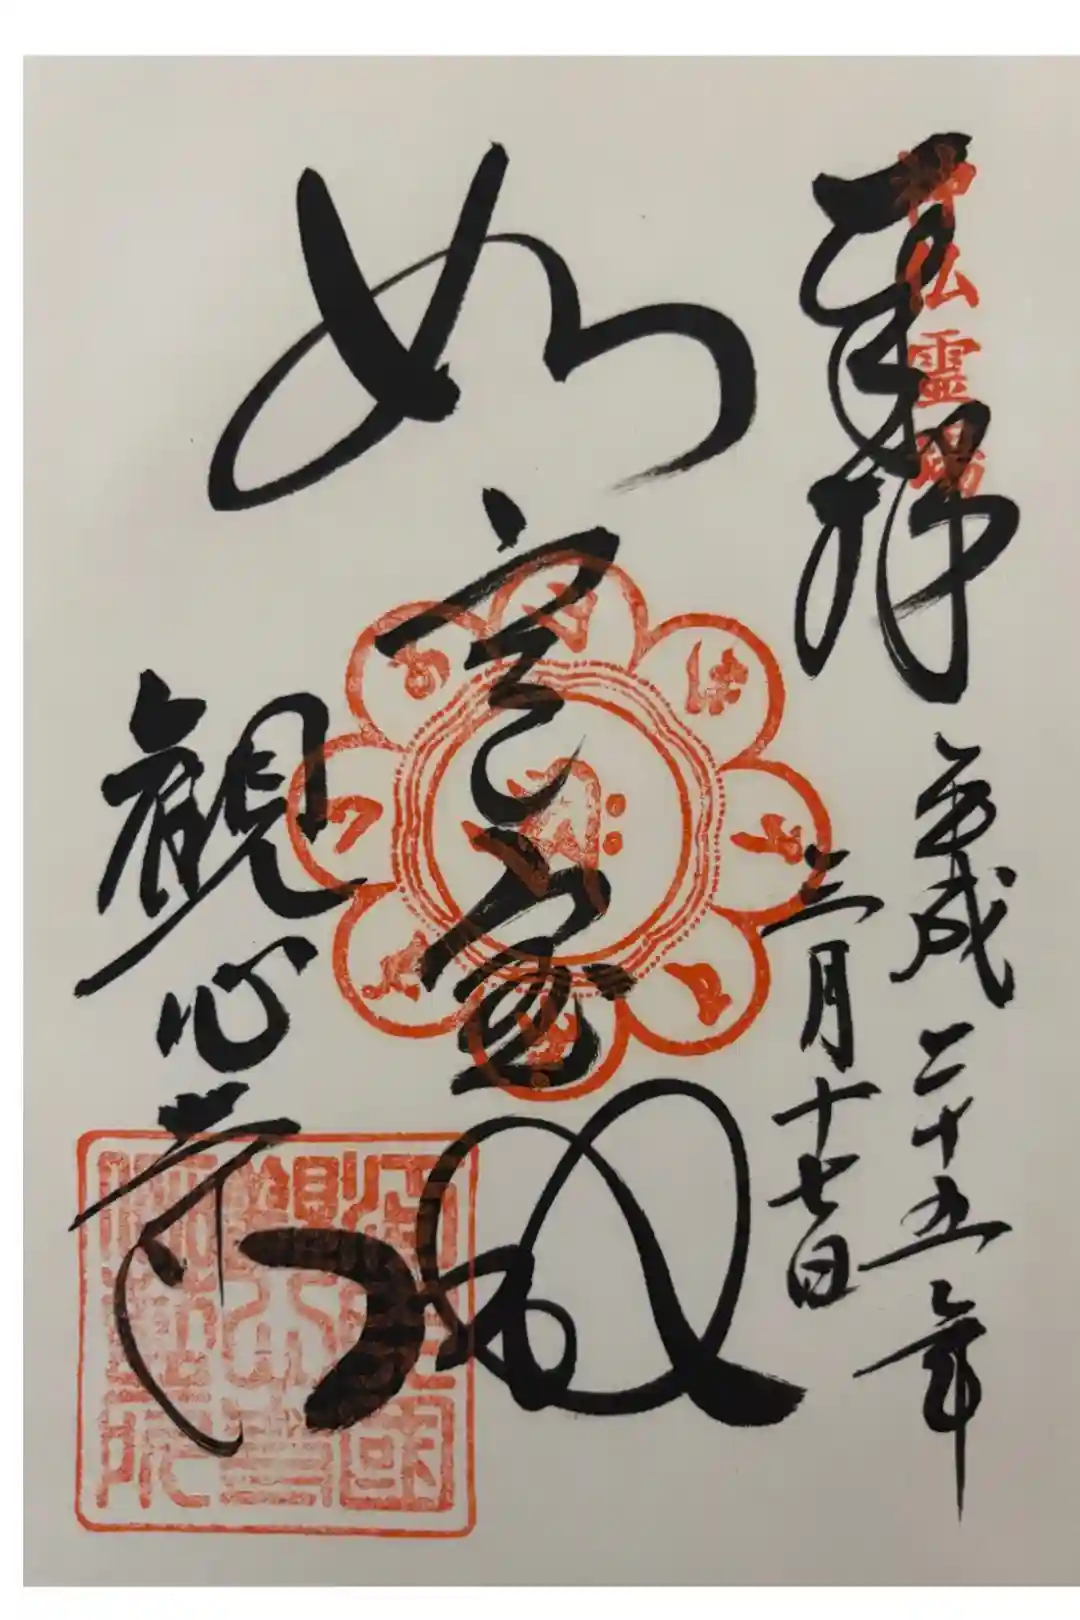 奉拝
神仏霊場
平成二十五年
三月十七日
如意宝殿
観心寺